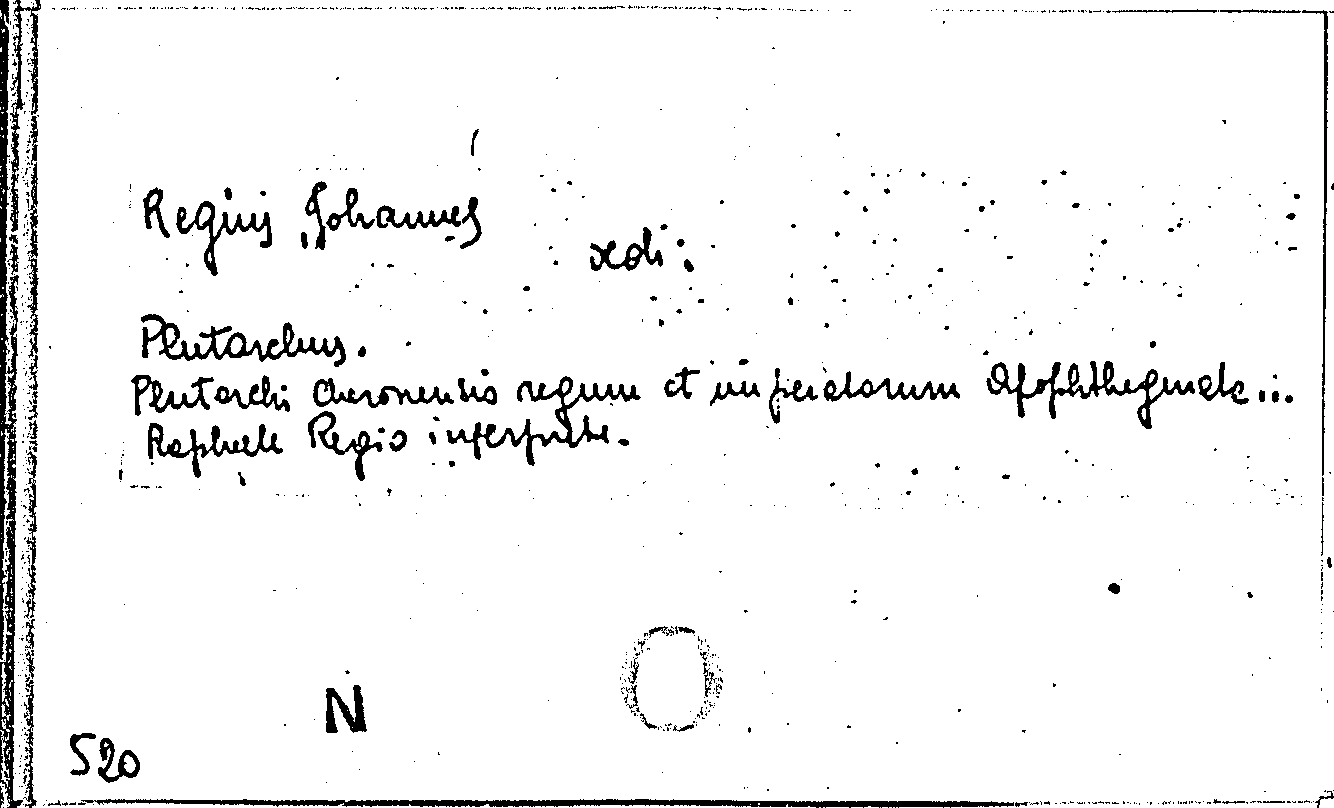 Regius Johannes
xdi:
Plutarchus.
Plutarchi Cheronensis regum et imperatorum Apophthegmata...
Raphaele Regio interprete.
N
520